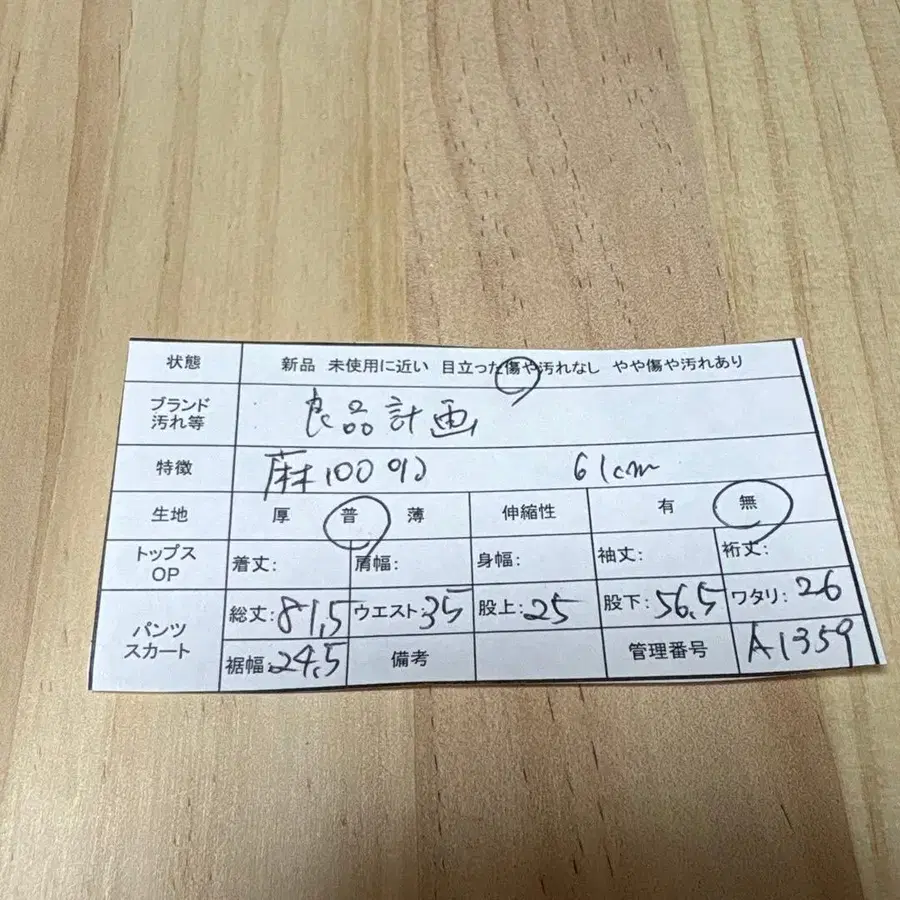 状態 新品 未使用に近い 目立った傷や汚れなし やや傷や汚れあり
ブランド 汚れ等 良品計画
特徴 麻100% 61cm
生地 厚 普 薄 伸縮性 有 無
トップス OP 着丈: 肩幅: 身幅: 袖丈: 裄丈:
パンツ スカート 総丈:81,5 ウエスト35 股上:25 股下:56,5 ワタリ:26
裾幅:24,5 備考 管理番号 A1359